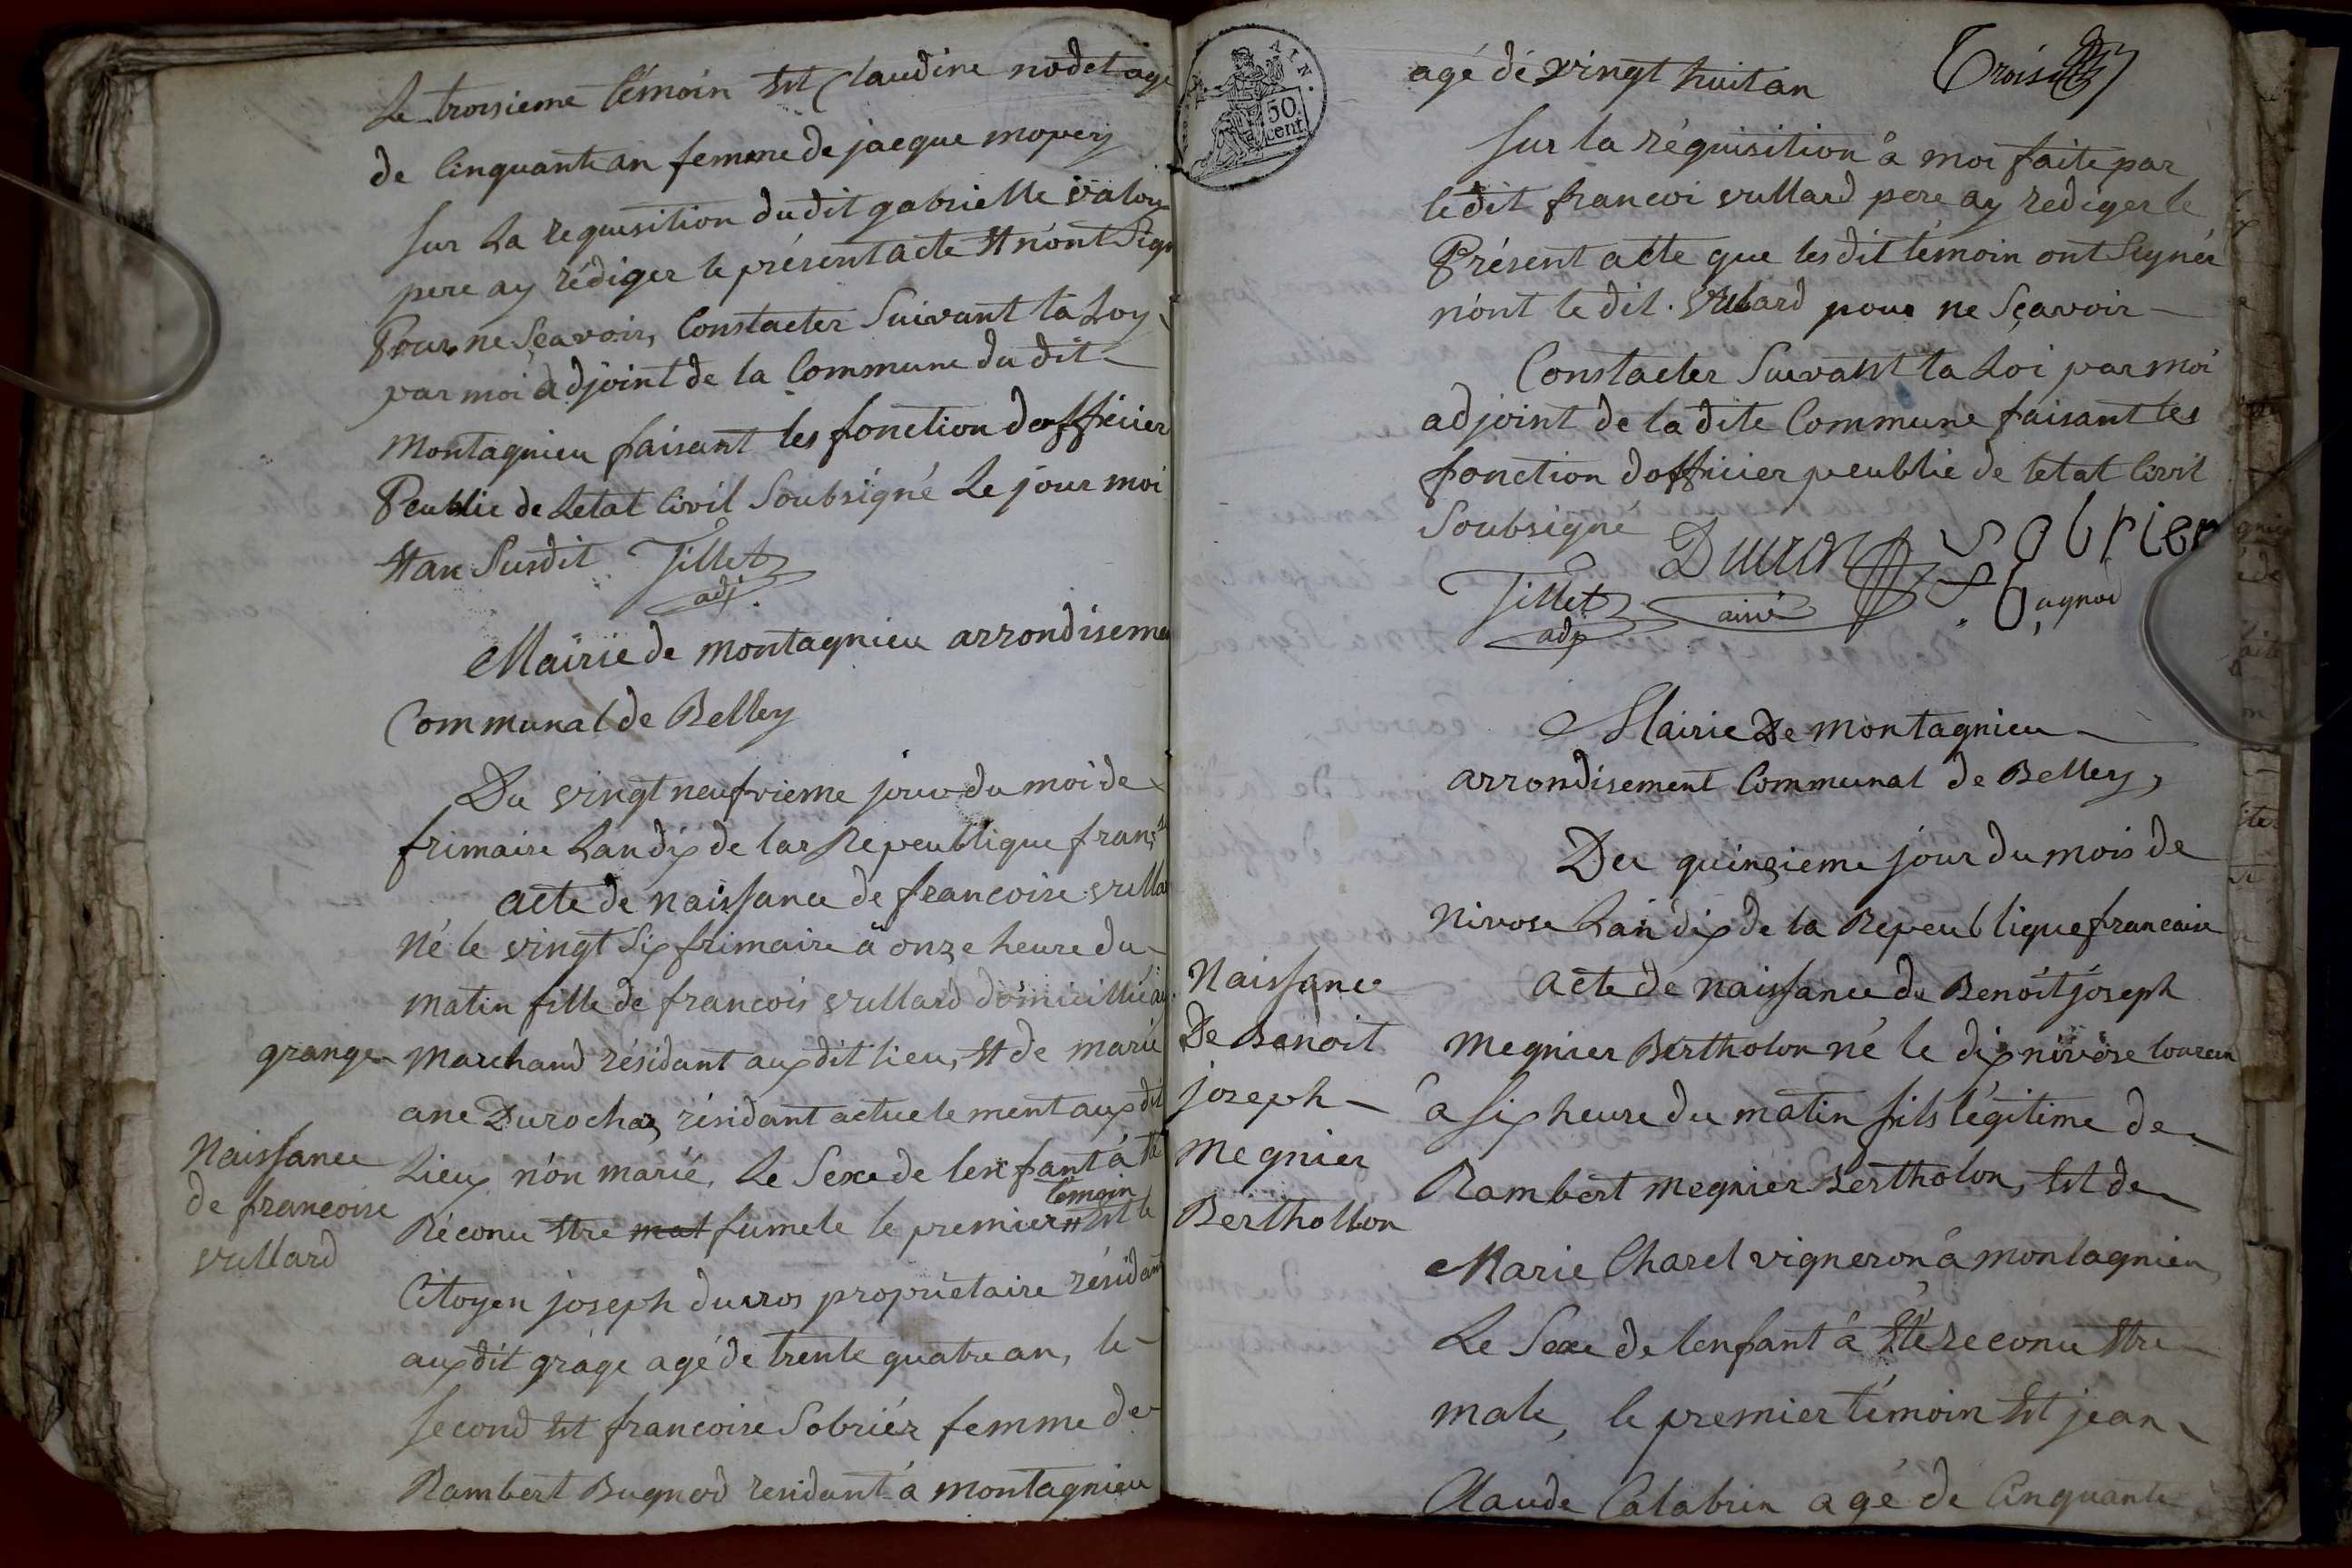 Le troisieme témoin Est Claudine nodet agé
de Cinquante an femme de jacque mopery
sur La requisition dudit gabrielle
pere ay rédiger le présent acte Et n'ont Sign
Pour ne Sçavoir, Constaeter Suivant la Loy
par moi adjoint de la Commune du dit
Montagnieu faisant les fonction dofficier
Peublic de Letat Civil Soubsigné Le jour moi
Et an Susdit Tillet
adj
Mairie de montagnieu arrondiseme
Communal de Belley
Du vingt neufvieme jour du moi de
frimaire Lan dix de las Repeublique franc
acte de naissance de francoise vulla
Né le vingt Six frimaire à onze heure du
matin fille de francois vullard domicillié au
grange
Marchand résidant aux dit lieu, Et de marie
ane Durochas, résidant actuelement aux dit
Lieux non marié, Le Sexe de lenfant à Eté
témoin
Réconu Etre mal fumele le premier Est le
Naissance
de francoise
vullard
Citoyen joseph ducros propriétaire résidant
aux dit grage agé de trente quatre an, le
second Est francoise Sobriér femme de
Rambert Bugnod residant à montagnieu
50
cent
AIN
agé de vingt huit an
Trois
sur la réquisition à moi faite par
le dit francoi vullard pere ay rediger le
Présent acte que les dit témoin ont Signée
n'ont le dit. vulard pour ne Sçavoir
Constaeter Suivant la Loi par moi
adjoint de la dite Commune faisant les
fonction dofficier peublic de letat Civil
Soubsigné
Sobrier
Tillet
adj
ainé
Mairie De montagnieu
arrondisement Communal de Belley,
Du quinzieme jour du mois de
Nivose Lan dix de la Repeublique francaise
Naissance
De Benoit
joseph
Megnier
Berthollon
acte de naissance de Benoit joseph
Megnier Bertholon né le dix nivose
à six heure du matin fils légitime de
Rambert megnier Bertholon, Et de
Marie Charel vigneron à montagnieu
Le Sexe de lenfant à Eté reconu Etre
male, le premier témoin Est jean
Claude Calabrin agé de Cinquante